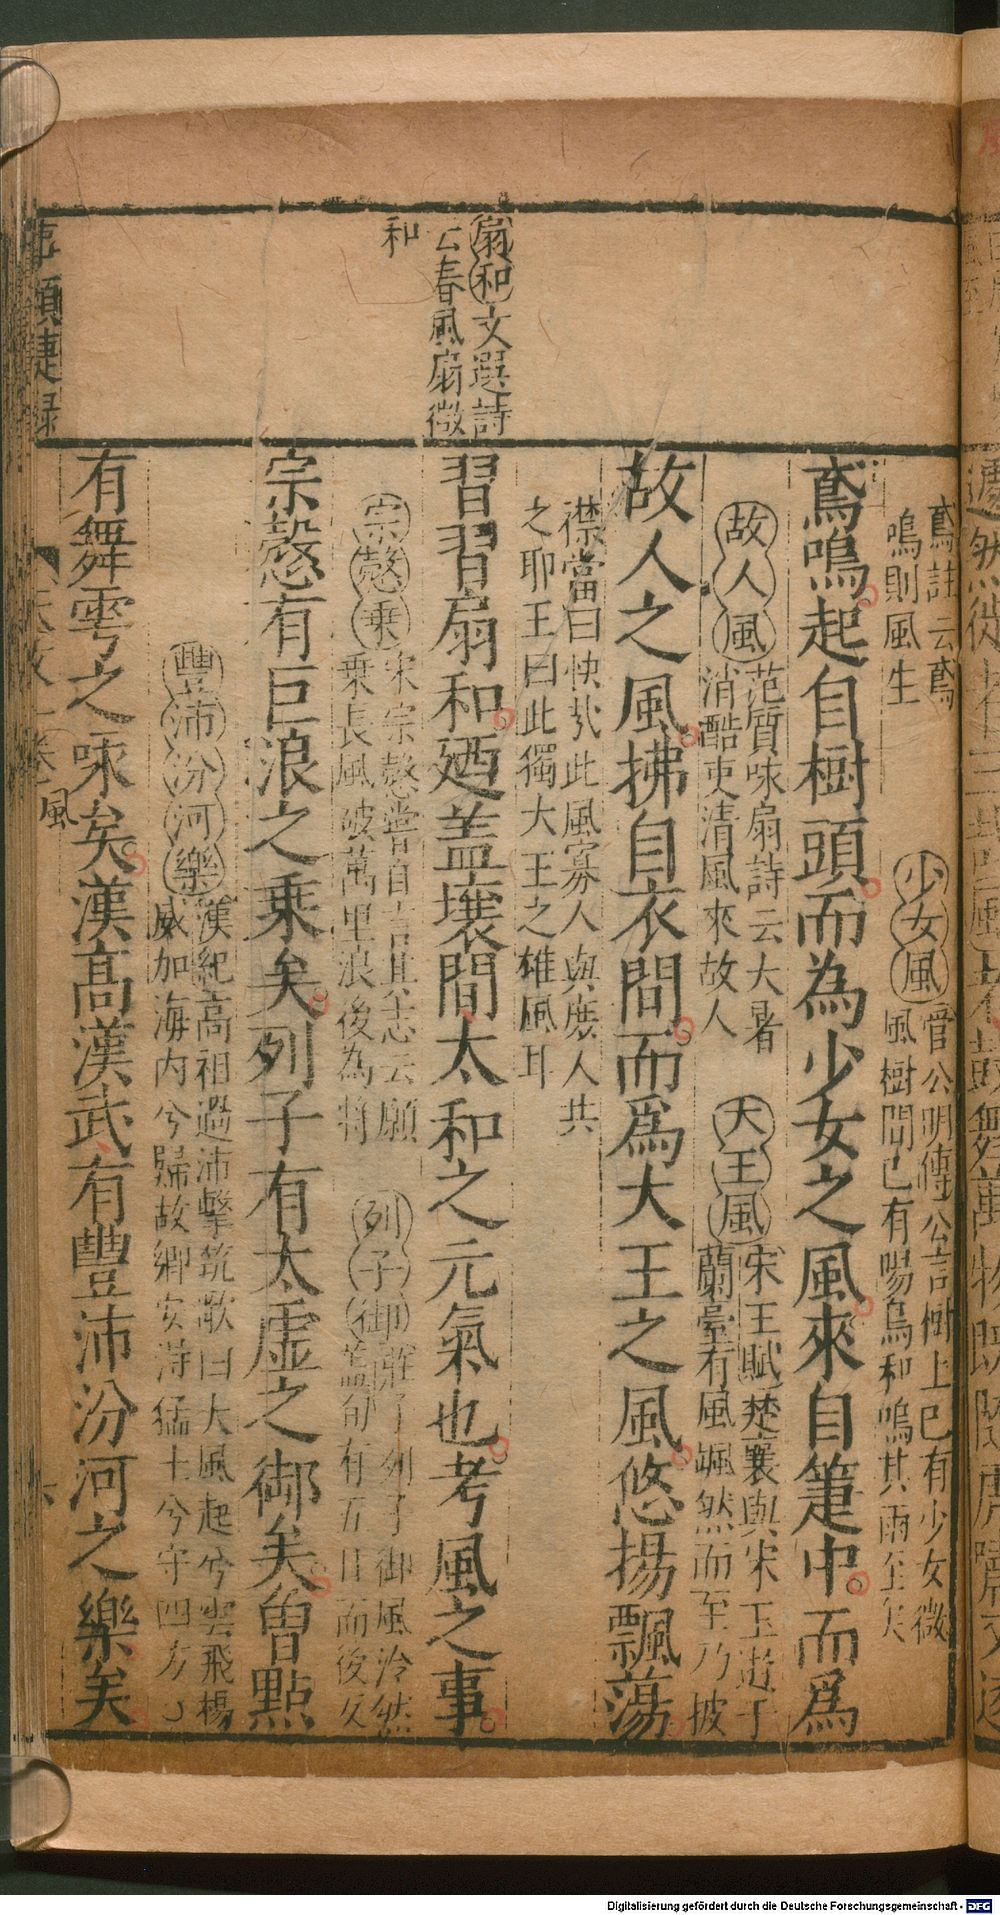 扇和文選詩
云春風扇微
和
鳶註云鳶
鳴則風生
少女風管公明傳公言樹上已有少女微
風樹間已有陽鳥和鳴其雨至矣
鳶鳴起自樹頭而為少女之風來自箑中而爲
故人風范質咏扇詩云大暑
消酷吏清風來故人
大王風宋玉賦楚襄與宋玉遊于
蘭臺有風颯然而至乃披
故人之風拂自衣間而爲大王之風悠揚飄蕩
襟當曰快哉此風寡人與庶人共
之耶王曰此獨大王之雄風耳
習習扇和廼蓋壤間太和之元氣也考風之事
宗慤乘宋宗慤嘗自言其志云願
乘長風破萬里浪後為將
列子御莊子列子御風泠然
善旬有五日而後反
宗慤有巨浪之乘矣列子有太虛之御矣曾點
豐沛汾河樂漢紀高祖過沛擊筑歌曰大風起兮雲飛楊
威加海內兮歸故鄉安得猛士兮守四方
有舞雩之咏矣漢高漢武有豐沛汾河之樂矣
事類捷錄
天文 一卷 風
六
Digitalisierung gefördert durch die Deutsche Forschungsgemeinschaft - DFG